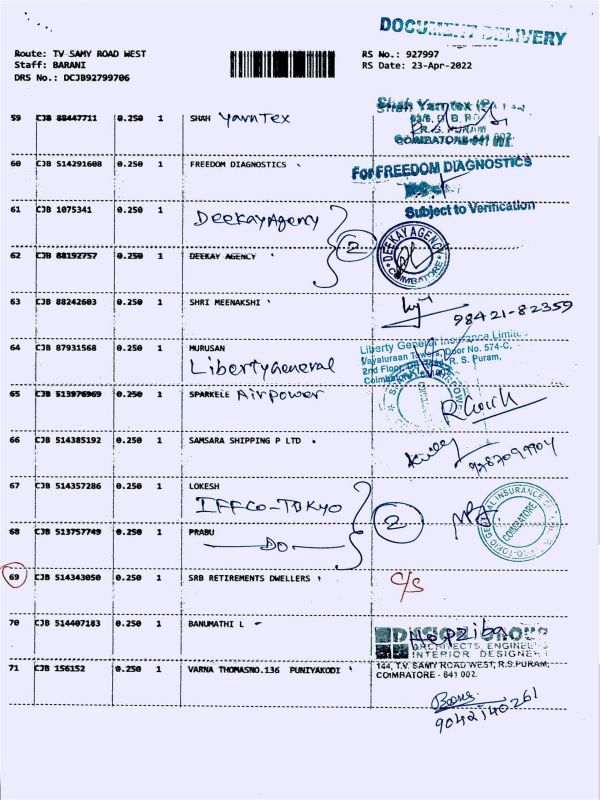 DOCUMENT DELIVERY
Route: TV SAMY ROAD WEST
Staff: BARANI
DRS No.: DCJB92799706
RS No.: 927997
RS Date: 23-Apr-2022
59 CJB 88447711 0.250 1 SHAH YarnTex
Shah Yarntex
R.S. PURAM
COIMBATORE-641 002.
60 CJB 514291608 0.250 1 FREEDOM DIAGNOSTICS
For FREEDOM DIAGNOSTICS
61 CJB 1075341 0.250 1 Deekay Agency
Subject to Verification
2
62 CJB 88192757 0.250 1 DEEKAY AGENCY
DEEKAY AGENCY
COIMBATORE
63 CJB 88242603 0.250 1 SHRI MEENAKSHI
98421-82359
64 CJB 87931568 0.250 1 MURUSAN
Liberty General
Liberty General Insurance Limited
Vayaluraan Towers, Door No. 574-C,
2nd Floor, R. S. Puram,
65 CJB 513976969 0.250 1 SPARKELE Air Power
66 CJB 514385192 0.250 1 SAMSARA SHIPPING P LTD
9787099904
67 CJB 514357286 0.250 1 LOKESH
IFFCO-TOKYO
2
GENERAL INSURANCE
COIMBATORE
68 CJB 513757749 0.250 1 PRABU
DO
69 CJB 514343050 0.250 1 SRB RETIREMENTS DWELLERS
C/S
70 CJB 514407183 0.250 1 BANUMATHI L
Hepziba
GROUP
ARCHITECTS ENGINEERS
INTERIOR DESIGNERS
144, T.V. SAMY ROAD WEST, R.S.PURAM,
COIMBATORE - 641 002.
71 CJB 156152 0.250 1 VARNA THOMASNO.136 PUNIYAKODI
9042140261